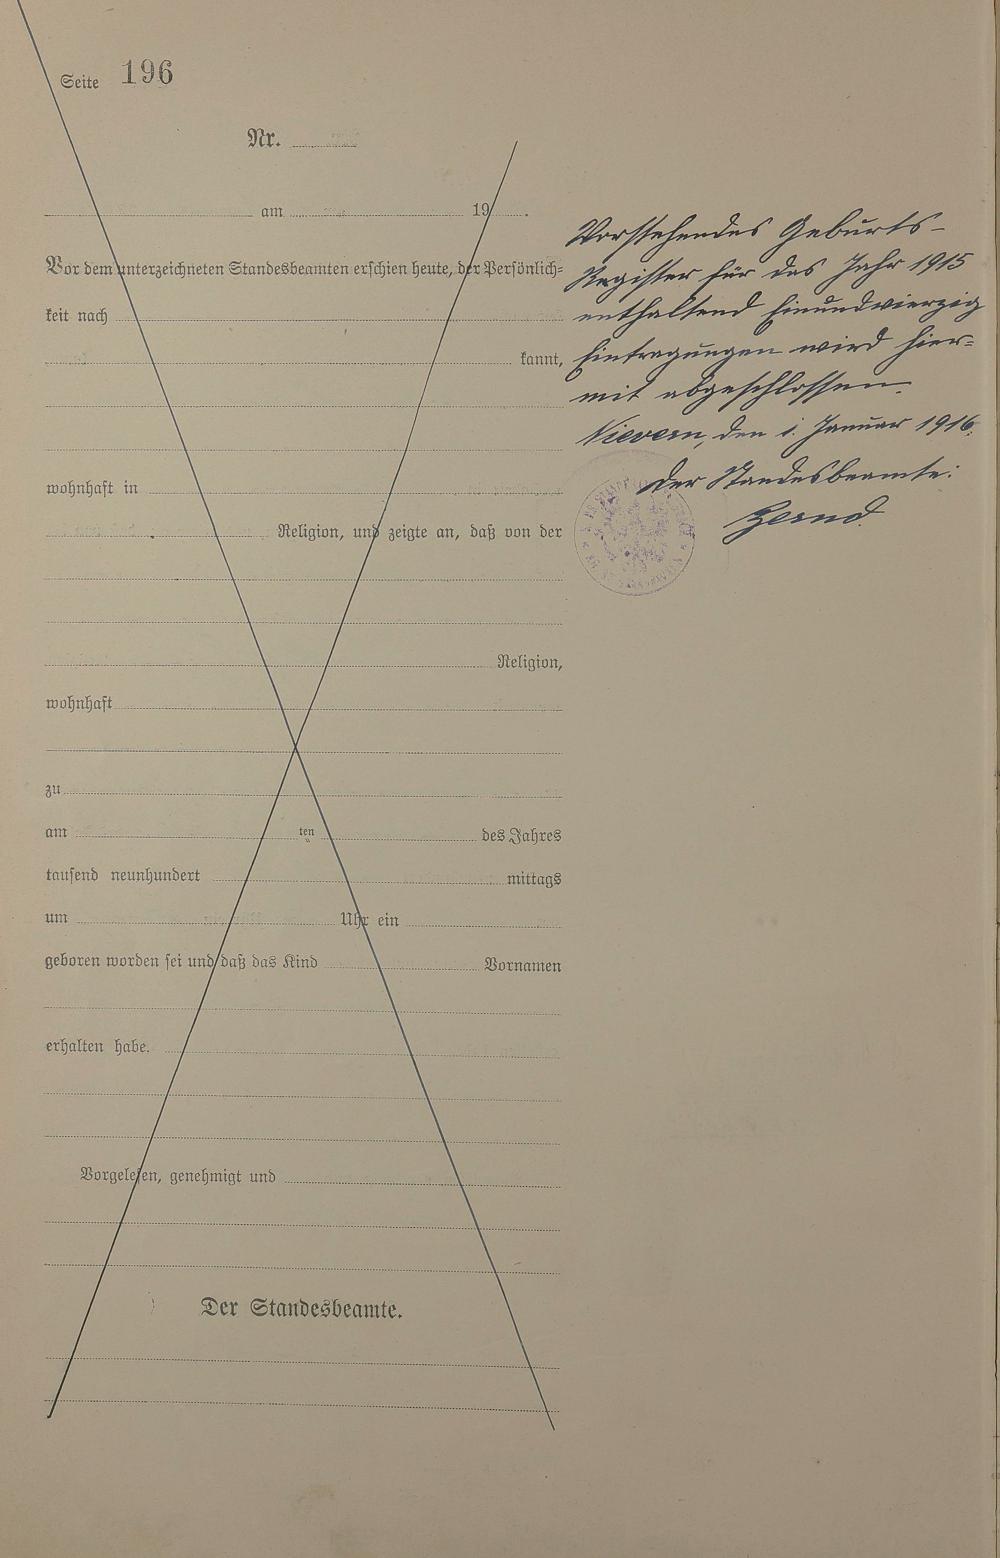 Seite 196
Nr.
am 19 .
Vor dem unterzeichneten Standesbeamten erschien heute, der Persönlich=
keit nach
kannt,
wohnhaft in
Religion, und zeigte an, daß von der
Religion,
wohnhaft
zu
am ten des Jahres
tausend neunhundert mittags
um Uhr ein
geboren worden sei und daß das Kind Vornamen
erhalten habe.
Vorgelesen, genehmigt und
Der Standesbeamte.
Vorstehendes Geburts-
Register für das Jahr 1915
enthaltend Einundvierzig
Eintragungen wird hier=
mit abgeschlossen.
Nievern, den 1. Januar 1916.
Der Standesbeamte: